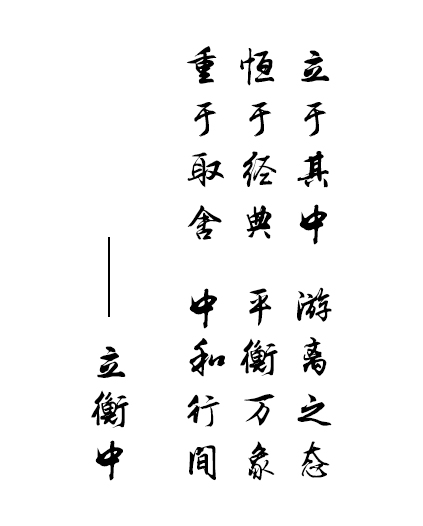 立于其中 游离之态
恒于经典 平衡万象
重于取舍 中和行间
——立衡中